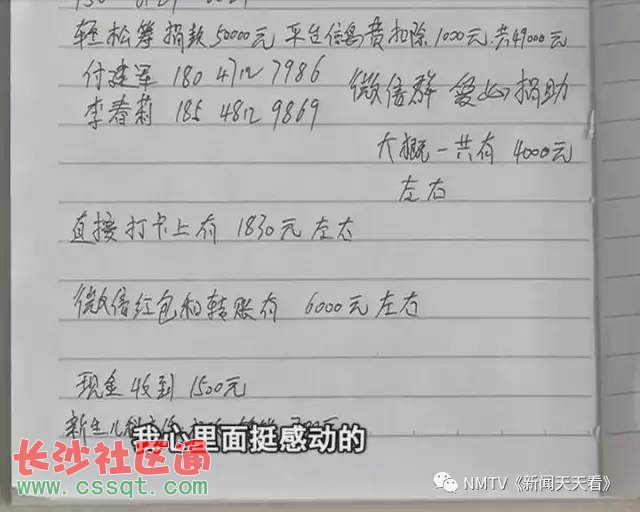 轻松筹捐款50000元 平台信息费扣除1000元.共49000元
付建军 180 4712 7986 微信群 爱心捐助
李春莉 185 4812 9869
大概一共有 4000元
左右
直接打卡上有 1830元左右
微信红包和转账有 6000元左右
现金收到 1500元
新生儿科
我心里面挺感动的
长沙社区通
www.cssqt.com
NMTV《新闻天天看》